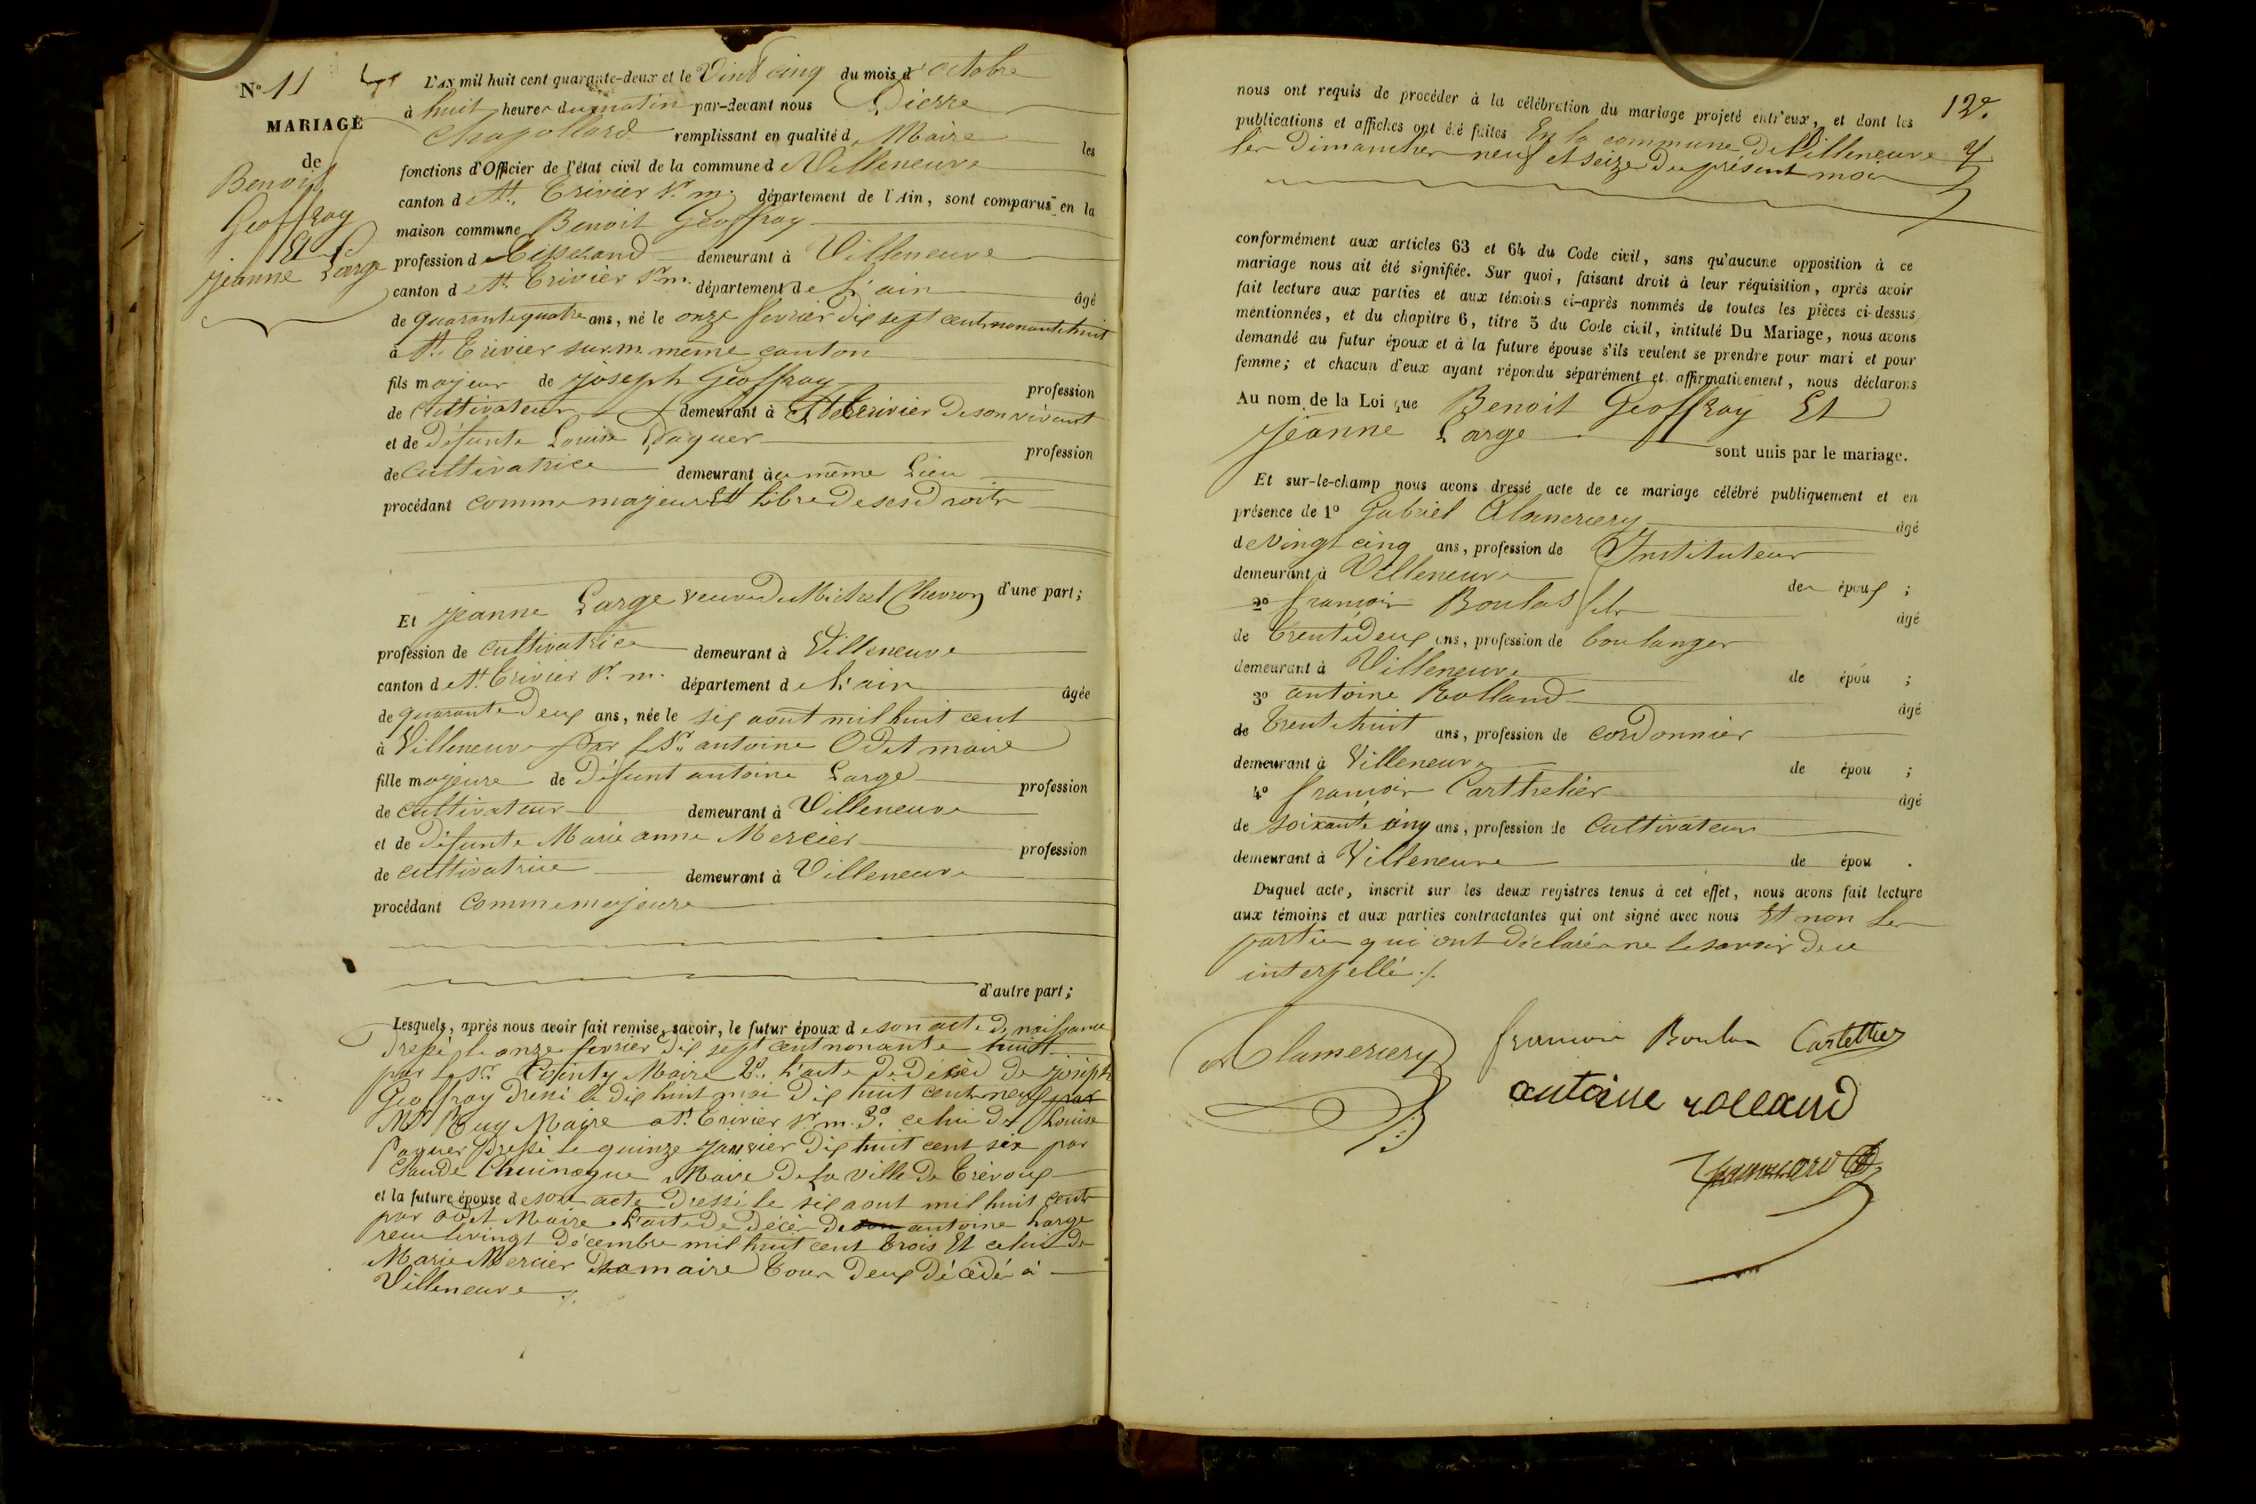 N° 11
MARIAGE
de
Benoit
Geoffray
Et
jeanne Large
L'AN mil huit cent quarante-deux et le Vint cinq du mois d'octobre
à huit heures du matin par-devant nous Pierre
Chapollard remplissant en qualité de Maire les
fonctions d'Officier de l'état civil de la commune de Villeneuve
canton de St. Trivier sr. m. département de l'Ain, sont comparus en la
maison commune Benoit Geoffray
profession de Tisserand demeurant à Villeneuve
canton de St. Trivier sr. m. département de L'ain âgé
de quarante quatre ans, né le onze fevrier dix sept cent nonante huit
à St. Trivier sur m. même canton
fils majeur de joseph Geoffray profession
de Cultivateur demeurant à St. Trivier de son vivant
et de défunte Louise Paquer profession
de Cultivatrice demeurant à ce même Lieu
procédant comme majeur Et Libre de ses droits
d'une part;
Et jeanne Large veuve de Michel Chevron
profession de cultivatrice demeurant à Villeneuve
canton de St. Trivier sr. m. département de L'ain âgée
de quarante deux ans, née le six aout mil huit cent
à Villeneuve par le Sr. antoine Odet maire
fille majeure de Défunt antoine Large profession
de Cultivateur demeurant à Villeneuve
et de défunte Marie anne Mercier profession
de cultivatrice demeurant à Villeneuve
procédant comme majeure
d'autre part;
Lesquels, après nous avoir fait remise, savoir, le futur époux de son acte de naissance
Dressé le onze fevrier dix sept cent nonante huit
par le Sr. Maire 2°. L'acte de décès de joseph
Geoffray dressé le dix huit mai dix huit cent neuf par
Mr. Maire a St. Trivier sr. m. 3°. celui de Louise
Paquer dressé le quinze janvier dix huit cent six par
Claude Chuinague Maire de la ville de Trévoux
et la future épouse de son acte dressé le six aout mil huit cent
par Odet Maire L'acte de décès de antoine Large
reçu le vingt décembre mil huit cent trois Et celui de
Marie Mercier sa maire tous deux décédés à
Villeneuve
12e.
nous ont requis de procéder à la célébration du mariage projeté entr'eux, et dont les
publications et affiches ont été faites En la commune de Villeneuve
les Dimanches neuf et seize du présent mois
conformément aux articles 63 et 64 du Code civil, sans qu'aucune opposition à ce
mariage nous ait été signifiée. Sur quoi, faisant droit à leur réquisition, après avoir
fait lecture aux parties et aux témoins ci-après nommés de toutes les pièces ci-dessus
mentionnées, et du chapitre 6, titre 5 du Code civil, intitulé Du Mariage, nous avons
demandé au futur époux et à la future épouse s'ils veulent se prendre pour mari et pour
femme; et chacun d'eux ayant répondu séparément et affirmativement, nous déclarons
Au nom de la Loi que Benoit Geoffray Et
jeanne Large sont unis par le mariage.
Et sur-le-champ nous avons dressé acte de ce mariage célébré publiquement et en
présence de 1° Gabriel Alamercery âgé
de vingt cinq ans, profession de Instituteur
demeurant à Villeneuve des époux ;
2° françois Boulas fils âgé
de trente deux ans, profession de boulanger
demeurant à Villeneuve de épou ;
3° antoine Rolland âgé
de trente huit ans, profession de cordonnier
demeurant à Villeneuve de épou ;
4° françois Carthelier âgé
de soixante cinq ans, profession de Cultivateur
demeurant à Villeneuve de épou .
Duquel acte, inscrit sur les deux registres tenus à cet effet, nous avons fait lecture
aux témoins et aux parties contractantes qui ont signé avec nous Et non les
parties qui ont déclaré ne le savoir de ce
interpellé ./.
Alamercery françois Boulas Cartellier
antoine rolland